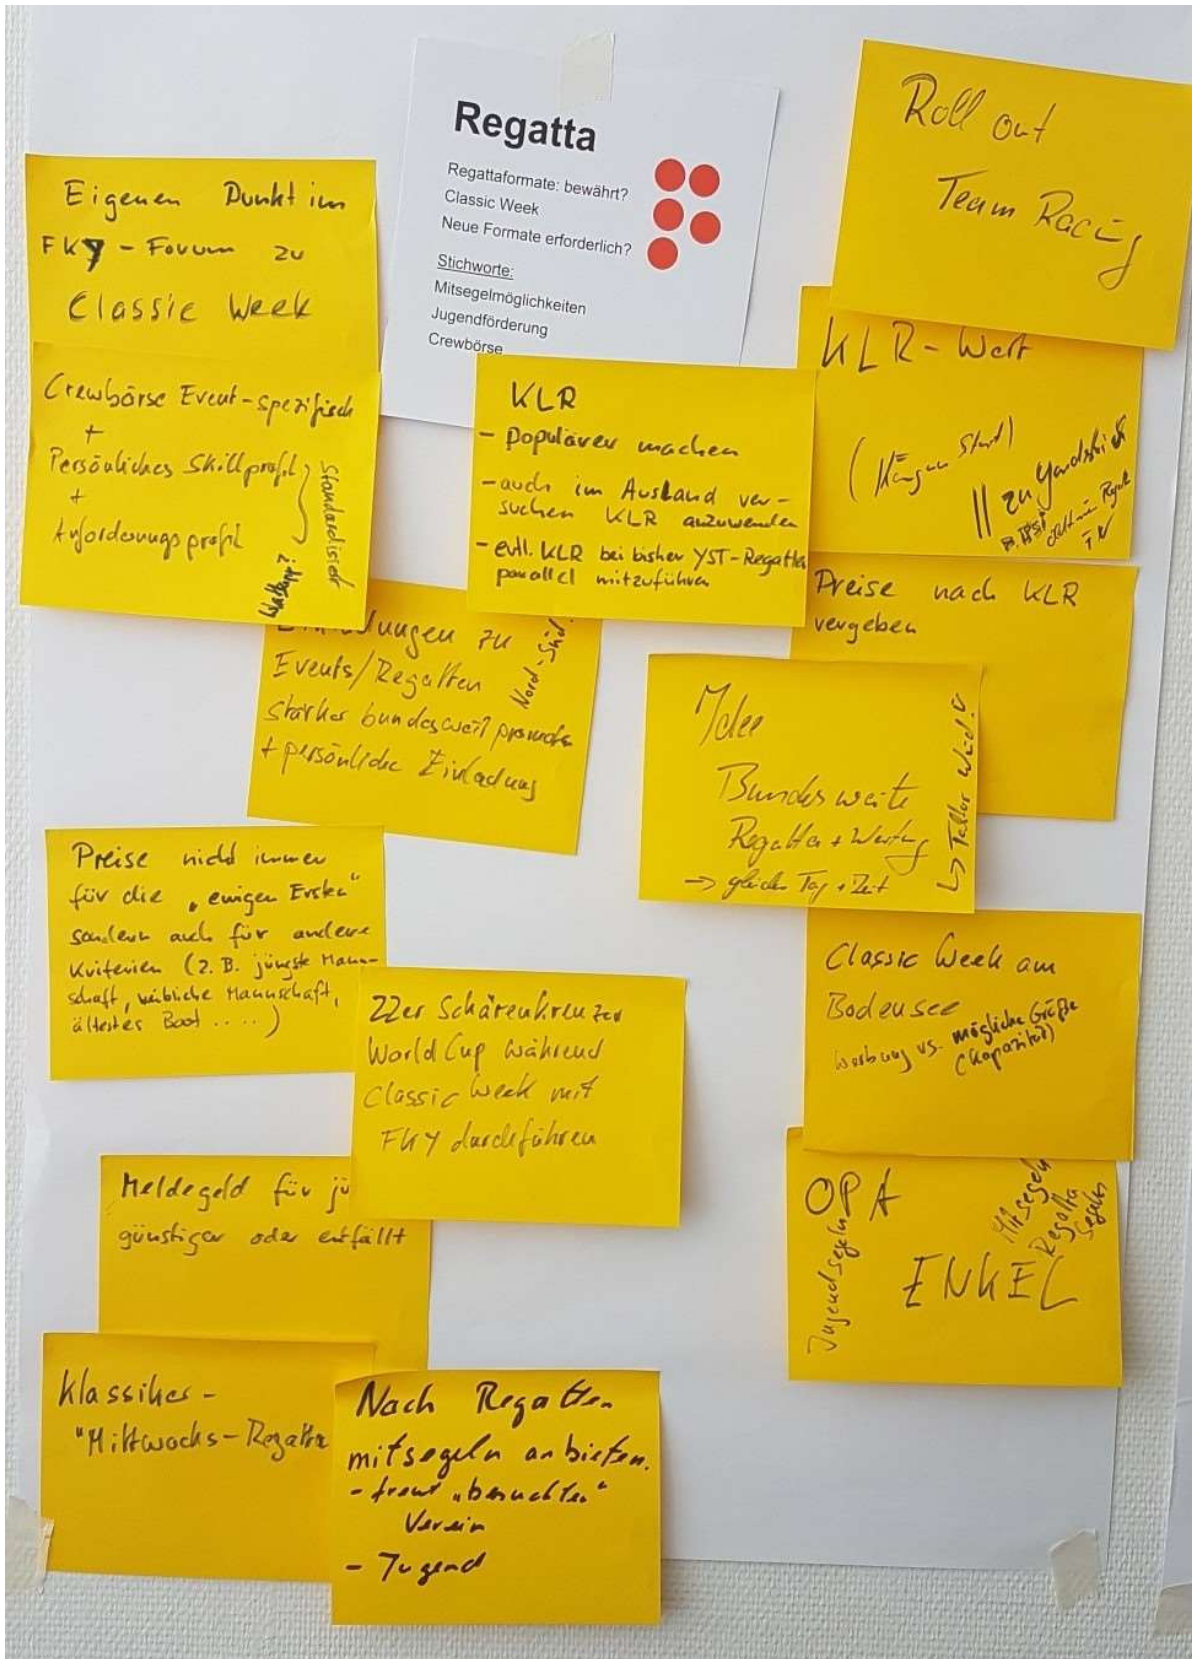 Regatta
Regattaformate: bewährt?
Classic Week
Neue Formate erforderlich?
Stichworte:
Mitsegelmöglichkeiten
Jugendförderung
Crewbörse
Roll out
Team Racing
Eigenen Punkt im
FKY - Forum zu
Classic Week
Crewbörse Event-spezifisch
+
Persönliches Skillprofil
+
Anforderungsprofil
Standardisiert
KLR
- populärer machen
- auch im Ausland ver-
suchen KLR anzuwenden
- evtl. KLR bei bisher YST-Regatten
parallel mitzuführen
KLR-Wert
(Känguru Start)
|| zu Yardstick
Preise nach KLR
vergeben
zu
Events/Regatten
stärker bundesweit promoten
+ persönliche Einladung
Nord-Süd
Idee
Bundesweite
Regatta + Wertung
-> gleicher Tag + Zeit
Preise nicht immer
für die „ewigen Ersten"
sondern auch für andere
Kriterien (z. B. jüngste Mann-
schaft, weibliche Mannschaft,
ältestes Boot ....)
22er Schärenkreuzer
World Cup während
Classic Week mit
FKY durchführen
Classic Week am
Bodensee
Werbung vs. mögliche Größe
(Kapazität)
Meldegeld für
günstiger oder entfällt
OPA
ENKEL
Jugendsegeln
Mitsegeln
Regatta
segeln
Klassiker-
"Mittwochs-Regatta
Nach Regatten
mitsegeln anbieten.
- freut „besuchten"
Verein
- Jugend